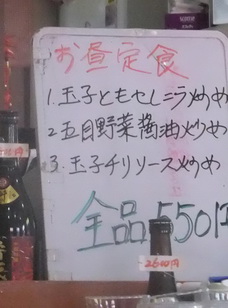 お昼定食
1.玉子ともやしニラ炒め
2.五目野菜醤油炒め
3.玉子チリソース炒め
全品550円
2600円